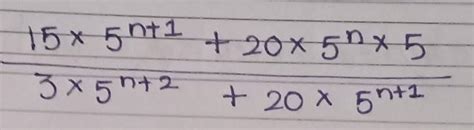 15 × 5^{n+1} + 20 × 5^n × 5
3 × 5^{n+2} + 20 × 5^{n+1}